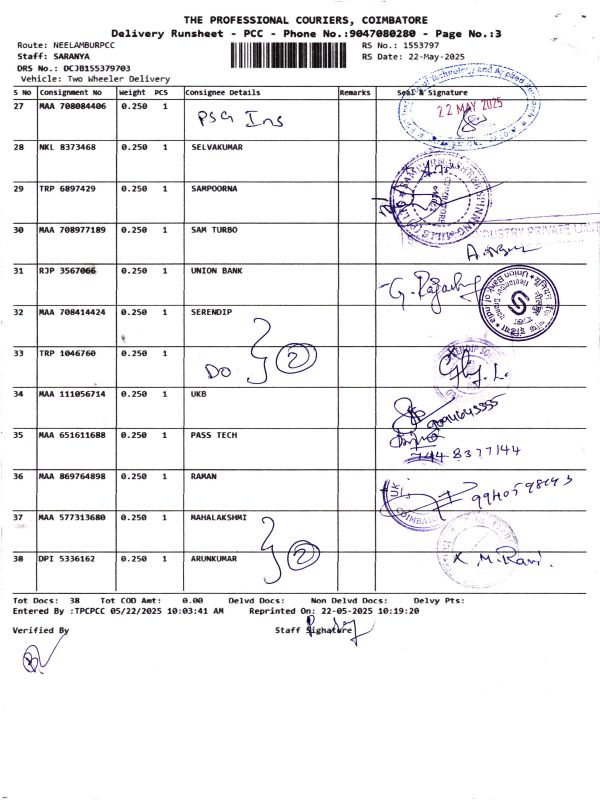 THE PROFESSIONAL COURIERS, COIMBATORE
Delivery Runsheet - PCC - Phone No.:9047080280 - Page No.:3
Route: NEELAMBURPCC RS No.: 1553797
Staff: SARANYA RS Date: 22-May-2025
DRS No.: DCJB155379703
Vehicle: Two Wheeler Delivery
S No Consignment No Weight PCS Consignee Details Remarks Seal & Signature
27 MAA 708084406 0.250 1 PSG Ins 22 MAY 2025
28 NKL 8373468 0.250 1 SELVAKUMAR
29 TRP 6897429 0.250 1 SAMPOORNA
30 MAA 708977189 0.250 1 SAM TURBO
31 RJP 3567066 0.250 1 UNION BANK
Union Bank of
32 MAA 708414424 0.250 1 SERENDIP
33 TRP 1046760 0.250 1 DO 2
34 MAA 111056714 0.250 1 UKB
35 MAA 651611688 0.250 1 PASS TECH
8377144
36 MAA 869764898 0.250 1 RAMAN
COIMBATORE
37 MAA 577313680 0.250 1 MAHALAKSHMI
2
38 DPI 5336162 0.250 1 ARUNKUMAR M. Ravi
Tot Docs: 38 Tot COD Amt: 0.00 Delvd Docs: Non Delvd Docs: Delvy Pts:
Entered By :TPCPCC 05/22/2025 10:03:41 AM Reprinted On: 22-05-2025 10:19:20
Verified By Staff Signature